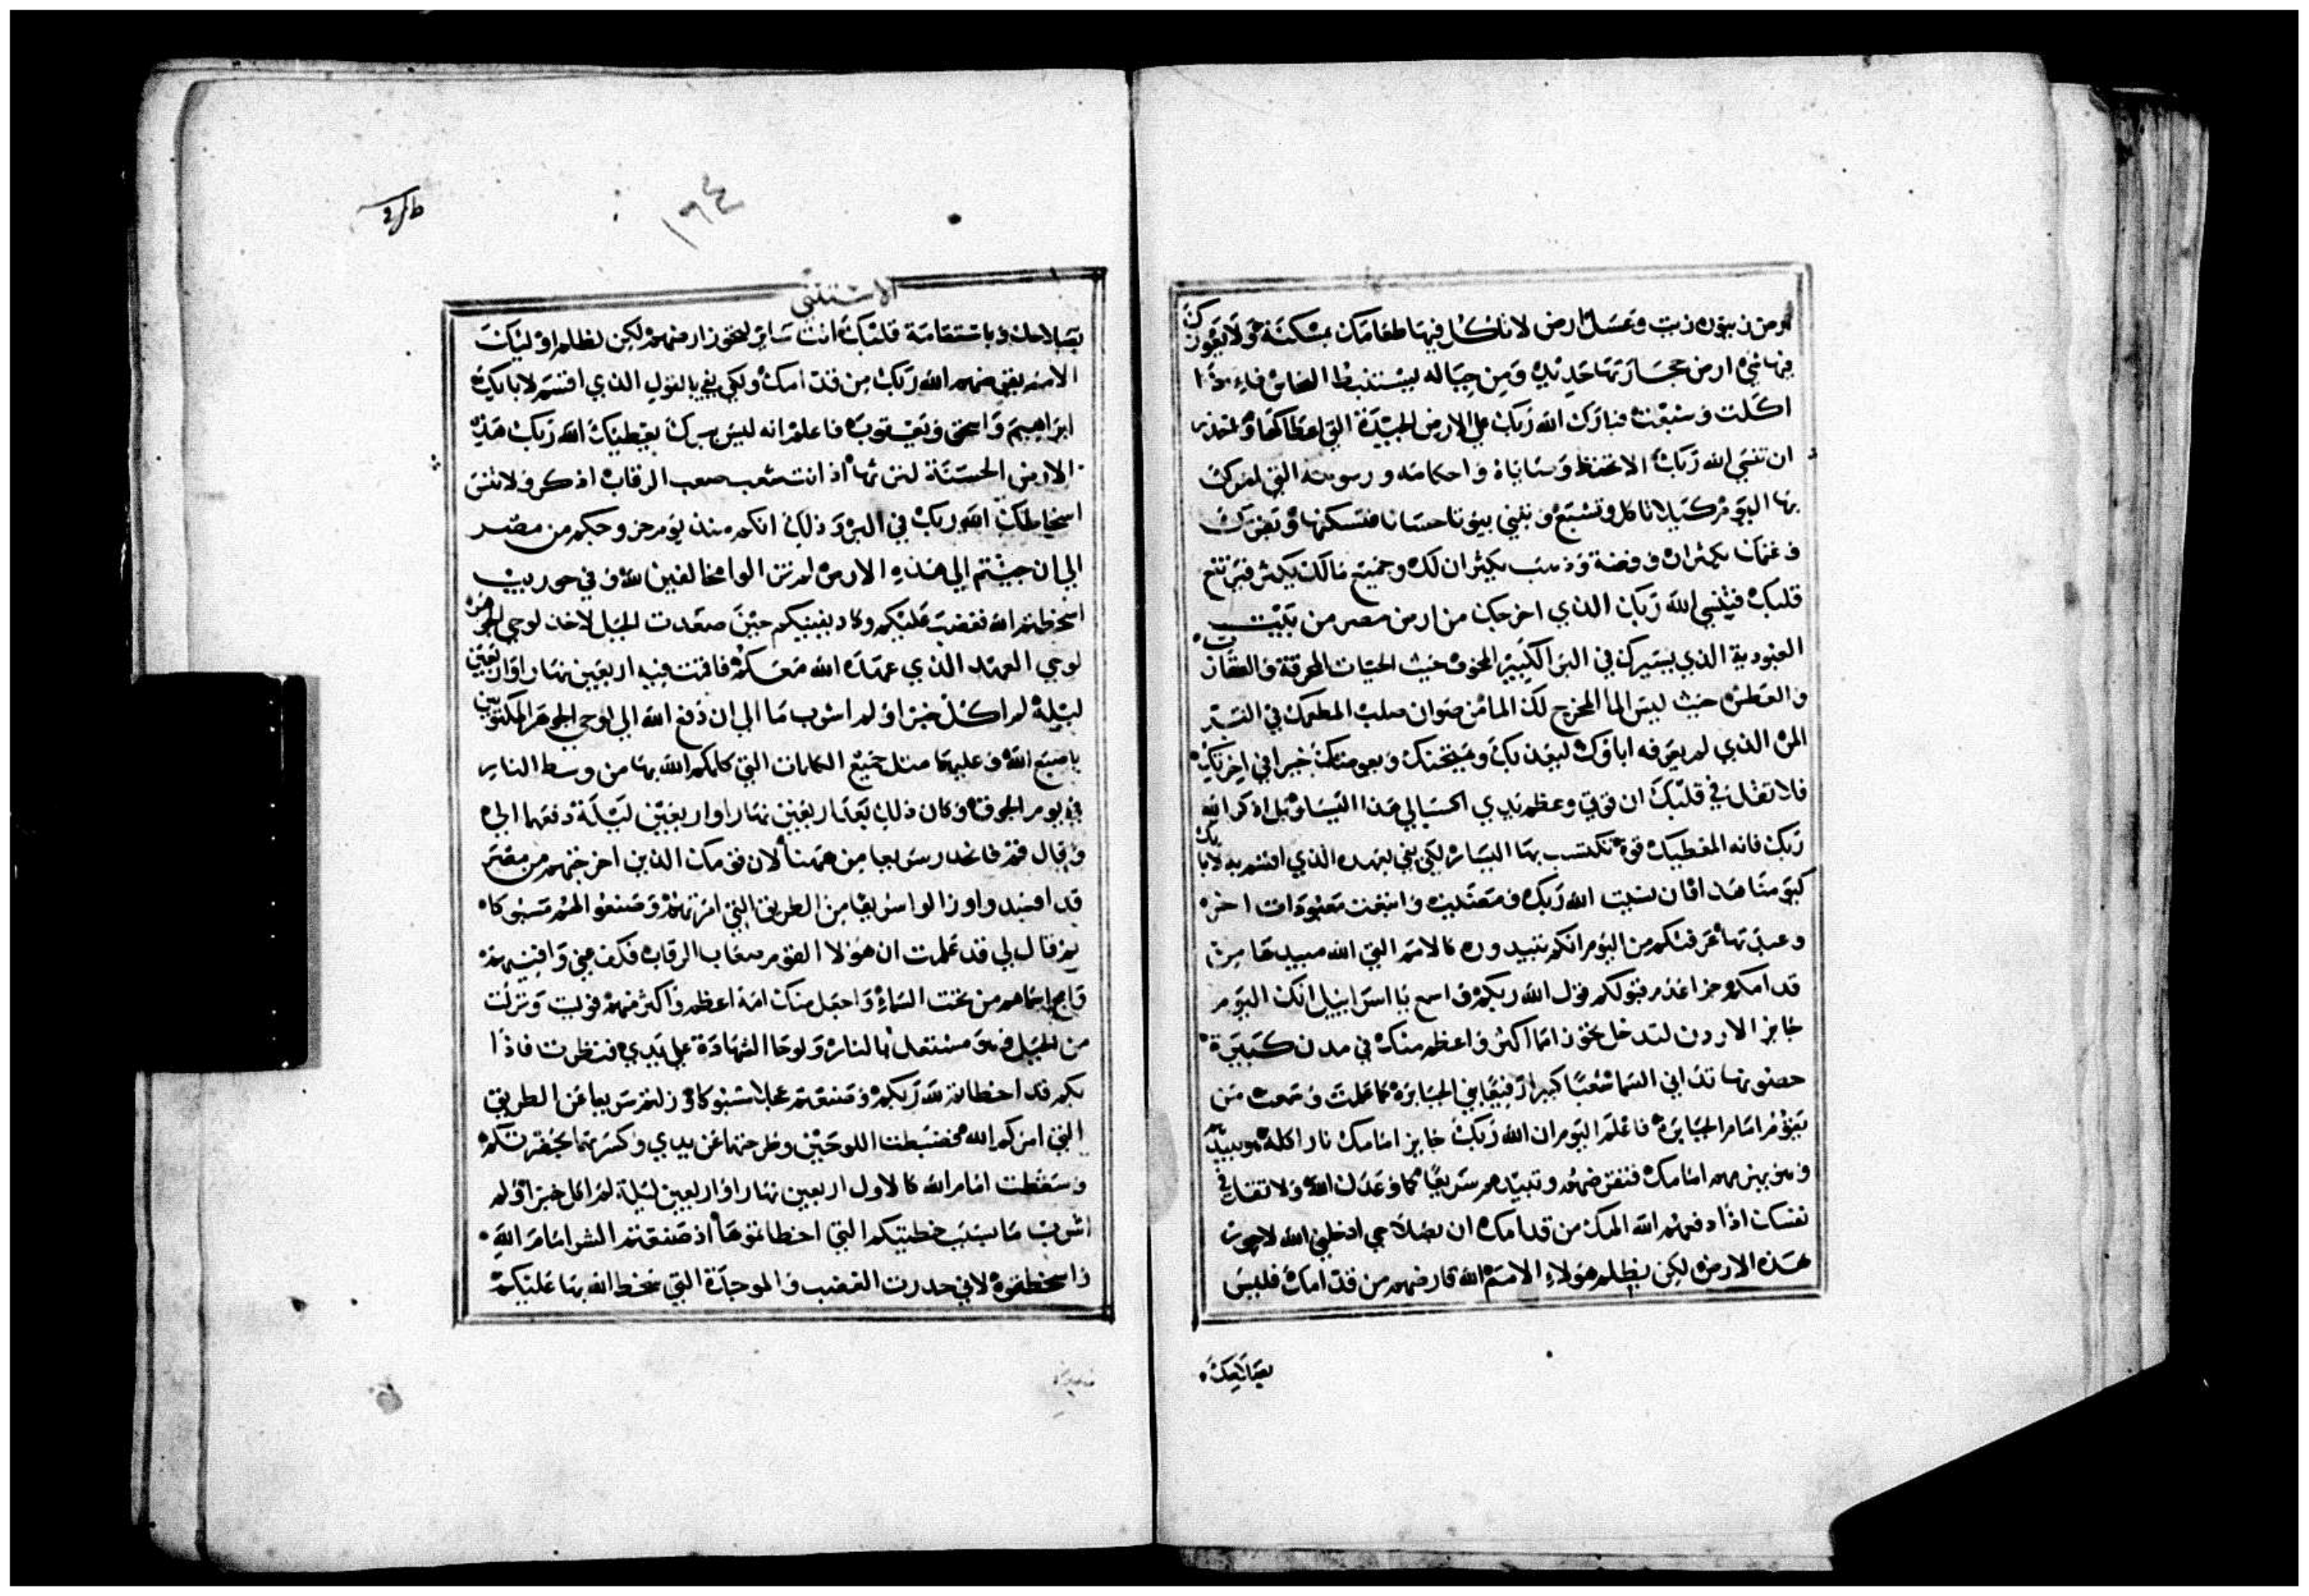 ارض زيتون زيت وعسل ارض لا تاكل فيها طعامك بمسكنة ولا يعوزك
فيها شي ارض حجارتها حديد ومن جباله يستنبط النحاس فاذا
اكلت وشبعت فبارك الله ربك علي الارض الجيدة التي اعطاكها واحذر
ان تنسي الله ربك الا تحفظ وصاياه واحكامه ورسومه التي امرك
بها اليوم كيلا تاكل وتشبع وتبني بيوتا حسانا فتسكنها وبقرك
وغنمك يكثران وفضة وذهب يكثران لك وجميع مالك يكثر فيرتفع
قلبك فينسي الله ربك الذي اخرجك من ارض مصر من بيت
العبودية الذي يسيرك في البر الكبير المخوف حيث الحيات المحرقة والعقارب
والعطش حيث ليس الما المخرج لك الما من صوان صلب المطعمك في البر
المن الذي لم يعرفه اباوك ليعذبك ويمتحنك خيرا في اخرتك
فلا تقل في قلبك ان قوتي وعظم يدي اكسبا لي هذا اليسار بل اذكر الله
ربك فانه المعطيك قوة تكتسب بها اليسار لكي يفي بعهده الذي اقسم به لابايك
كيومنا هذا فان نسيت الله ربك ومضيت واتبعت معبودات اخر
وعبدتها عرفتكم من اليوم انكم تبيدون كالامم التي الله مبيدها من
قدامكم جزا عدم قبولكم قول الله ربكم اسمع يا اسراييل انك اليوم
جايز الاردن لتدخل تحوز امما اكثر واعظم منك في مدن كبيرة
حصونها تداني السما شعبا كبيرا رفيعا بني الجبابرة كما علمت وسمعت من
يقوم امام الجبابرة فاعلم اليوم ان الله ربك جايز امامك نار اكلة هو يبيدهم
وهو يهزمهم امامك فتقرضهم وتبيدهم سريعا كما وعدك الله ولا تقل في
نفسك اذا دفعهم الله الهك من قدامك ان بصلاحي ادخلني الله لاحوز
هذه الارض لكن بظلم هولاء الامم الله قارضهم من قدامك فليس
بصلاحك
١٦٤
الاستثني
بصلاحك وباستقامة قلبك انت ساير لتحوز ارضهم لكن لظلم اوليك
الامم يفني منهم الله ربك من قدامك ولكي يفي بالقول الذي اقسم لابايك
ابراهيم واسحق ويعقوب فاعلم انه ليس ببرك يعطيك الله ربك هذه
الارض الحسنة لترثها اذ انت شعب صعب الرقاب اذكر ولا تنس
اسخاطك الله ربك في البر وذلك انكم منذ يوم خروجكم من مصر
الي ان جيتم الي هذه الارض لم تزالوا مخالفين لله وفي حوريب
اسخطتم الله فغضب عليكم وكاد يفنيكم حين صعدت الجبل لاخذ لوحي الجوهر
لوحي العهد الذي عهده الله معكم فاقمت فيه اربعين نهارا واربعين
ليلة لم اكل خبزا ولم اشرب ما الي ان دفع الله الي لوحي الجوهر المكتوبين
باصبع الله وعليهما مثل جميع الكلمات التي كلمكم الله بها من وسط النار
في يوم الجوق وكان ذلك بعد اربعين نهارا واربعين ليلة دفعهما الي
وقال قم فانحدر سريعا من ههنا لان قومك الذين اخرجتهم من مصر
قد افسدوا وزالوا سريعا من الطريق التي امرتهم وصنعوا لهم مسبوكا
ثم قال لي قد علمت ان هولا القوم صعاب الرقاب فكف عني وافنيهم
وامح اسماهم من تحت السماء واجعل منك امة اعظم واكثر منهم فوليت ونزلت
من الجبل وهو مشتعل بالنار ولوحا الشهادة علي يدي فنظرت فاذا
بكم قد اخطاتم لله ربكم وصنعتم عجلا مسبوكا وزلتم سريعا عن الطريق
التي امركم الله فضبطت اللوحين وطرحتهما عن يدي وكسرتهما بحضرتكم
وسقطت امام الله كالاول اربعين نهارا واربعين ليلة لم اكل خبزا ولم
اشرب ما بسبب خطيتكم التي اخطاتموها اذ صنعتم الشر امام الله
واسخطتموه لاني حذرت الغضب والموجدة التي سخط الله بها عليكم